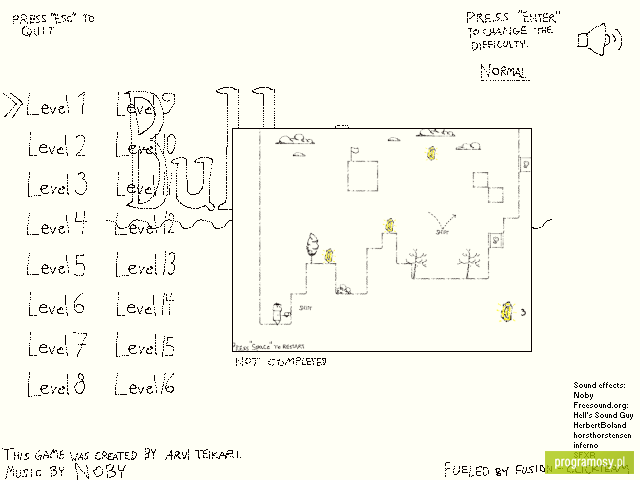 PRESS "ESC" TO
QUIT
PRESS "ENTER"
TO CHANGE THE
DIFFICULTY.
NORMAL
Level 1
Level 2
Level 3
Level 4
Level 5
Level 6
Level 7
Level 8
Level 9
Level 10
Level
Level 12
Level 13
Level 14
Level 15
Level 16
Bull
SHIFT
3
PRESS "SPACE" TO RESTART
NOT COMPLETED
Sound effects:
Noby
Freesound.org:
Hell's Sound Guy
HerbertBoland
horsthorstensen
inferno
SFXR
THIS GAME WAS CREATED BY ARVI TEIKARI.
MUSIC BY NOBY
FUELED BY FUSION - CLICKTEAM
programosy.pl